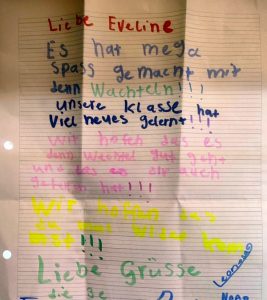 Liebe Eveline
Es hat mega
spass gemacht mit
denn Wachteln!!!
unsere klasse hat
Viel neues gelernt!!!
Wir hofen das es
denn Wachtel gut geht
und das es dir auch
gefallen hat!!!
Wir hoffen das
du mal wider
!!!
Liebe Grüsse
die 3c
Leonardo